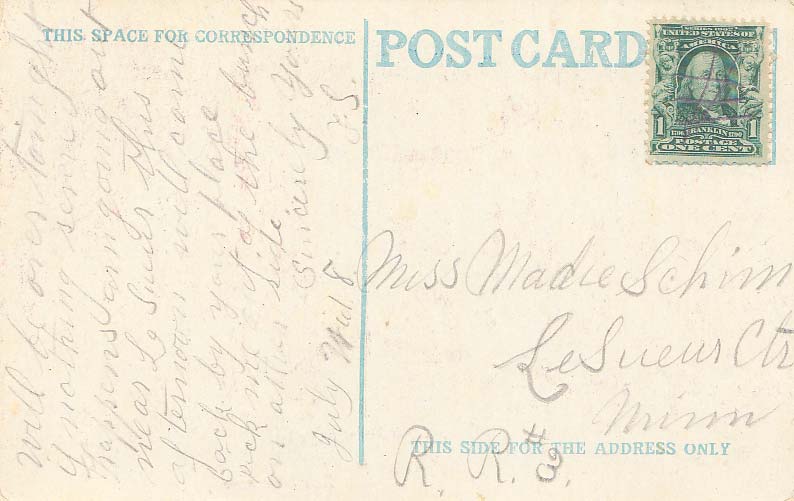 THIS SPACE FOR CORRESPONDENCE
POST CARD
SERIES 1902
UNITED STATES OF
AMERICA
1
1706 FRANKLIN 1790
1
POSTAGE
ONE CENT
will be over tonight
if nothing serious
happens am going out
near Le Sueur this
afternoon will come
back by your place
pick me out of the bunch
on other side
Sincerely Yours
July 8
F.S.
Miss Madie Schim
LeSueur Ctr
Minn
R. R. #3.
THIS SIDE FOR THE ADDRESS ONLY